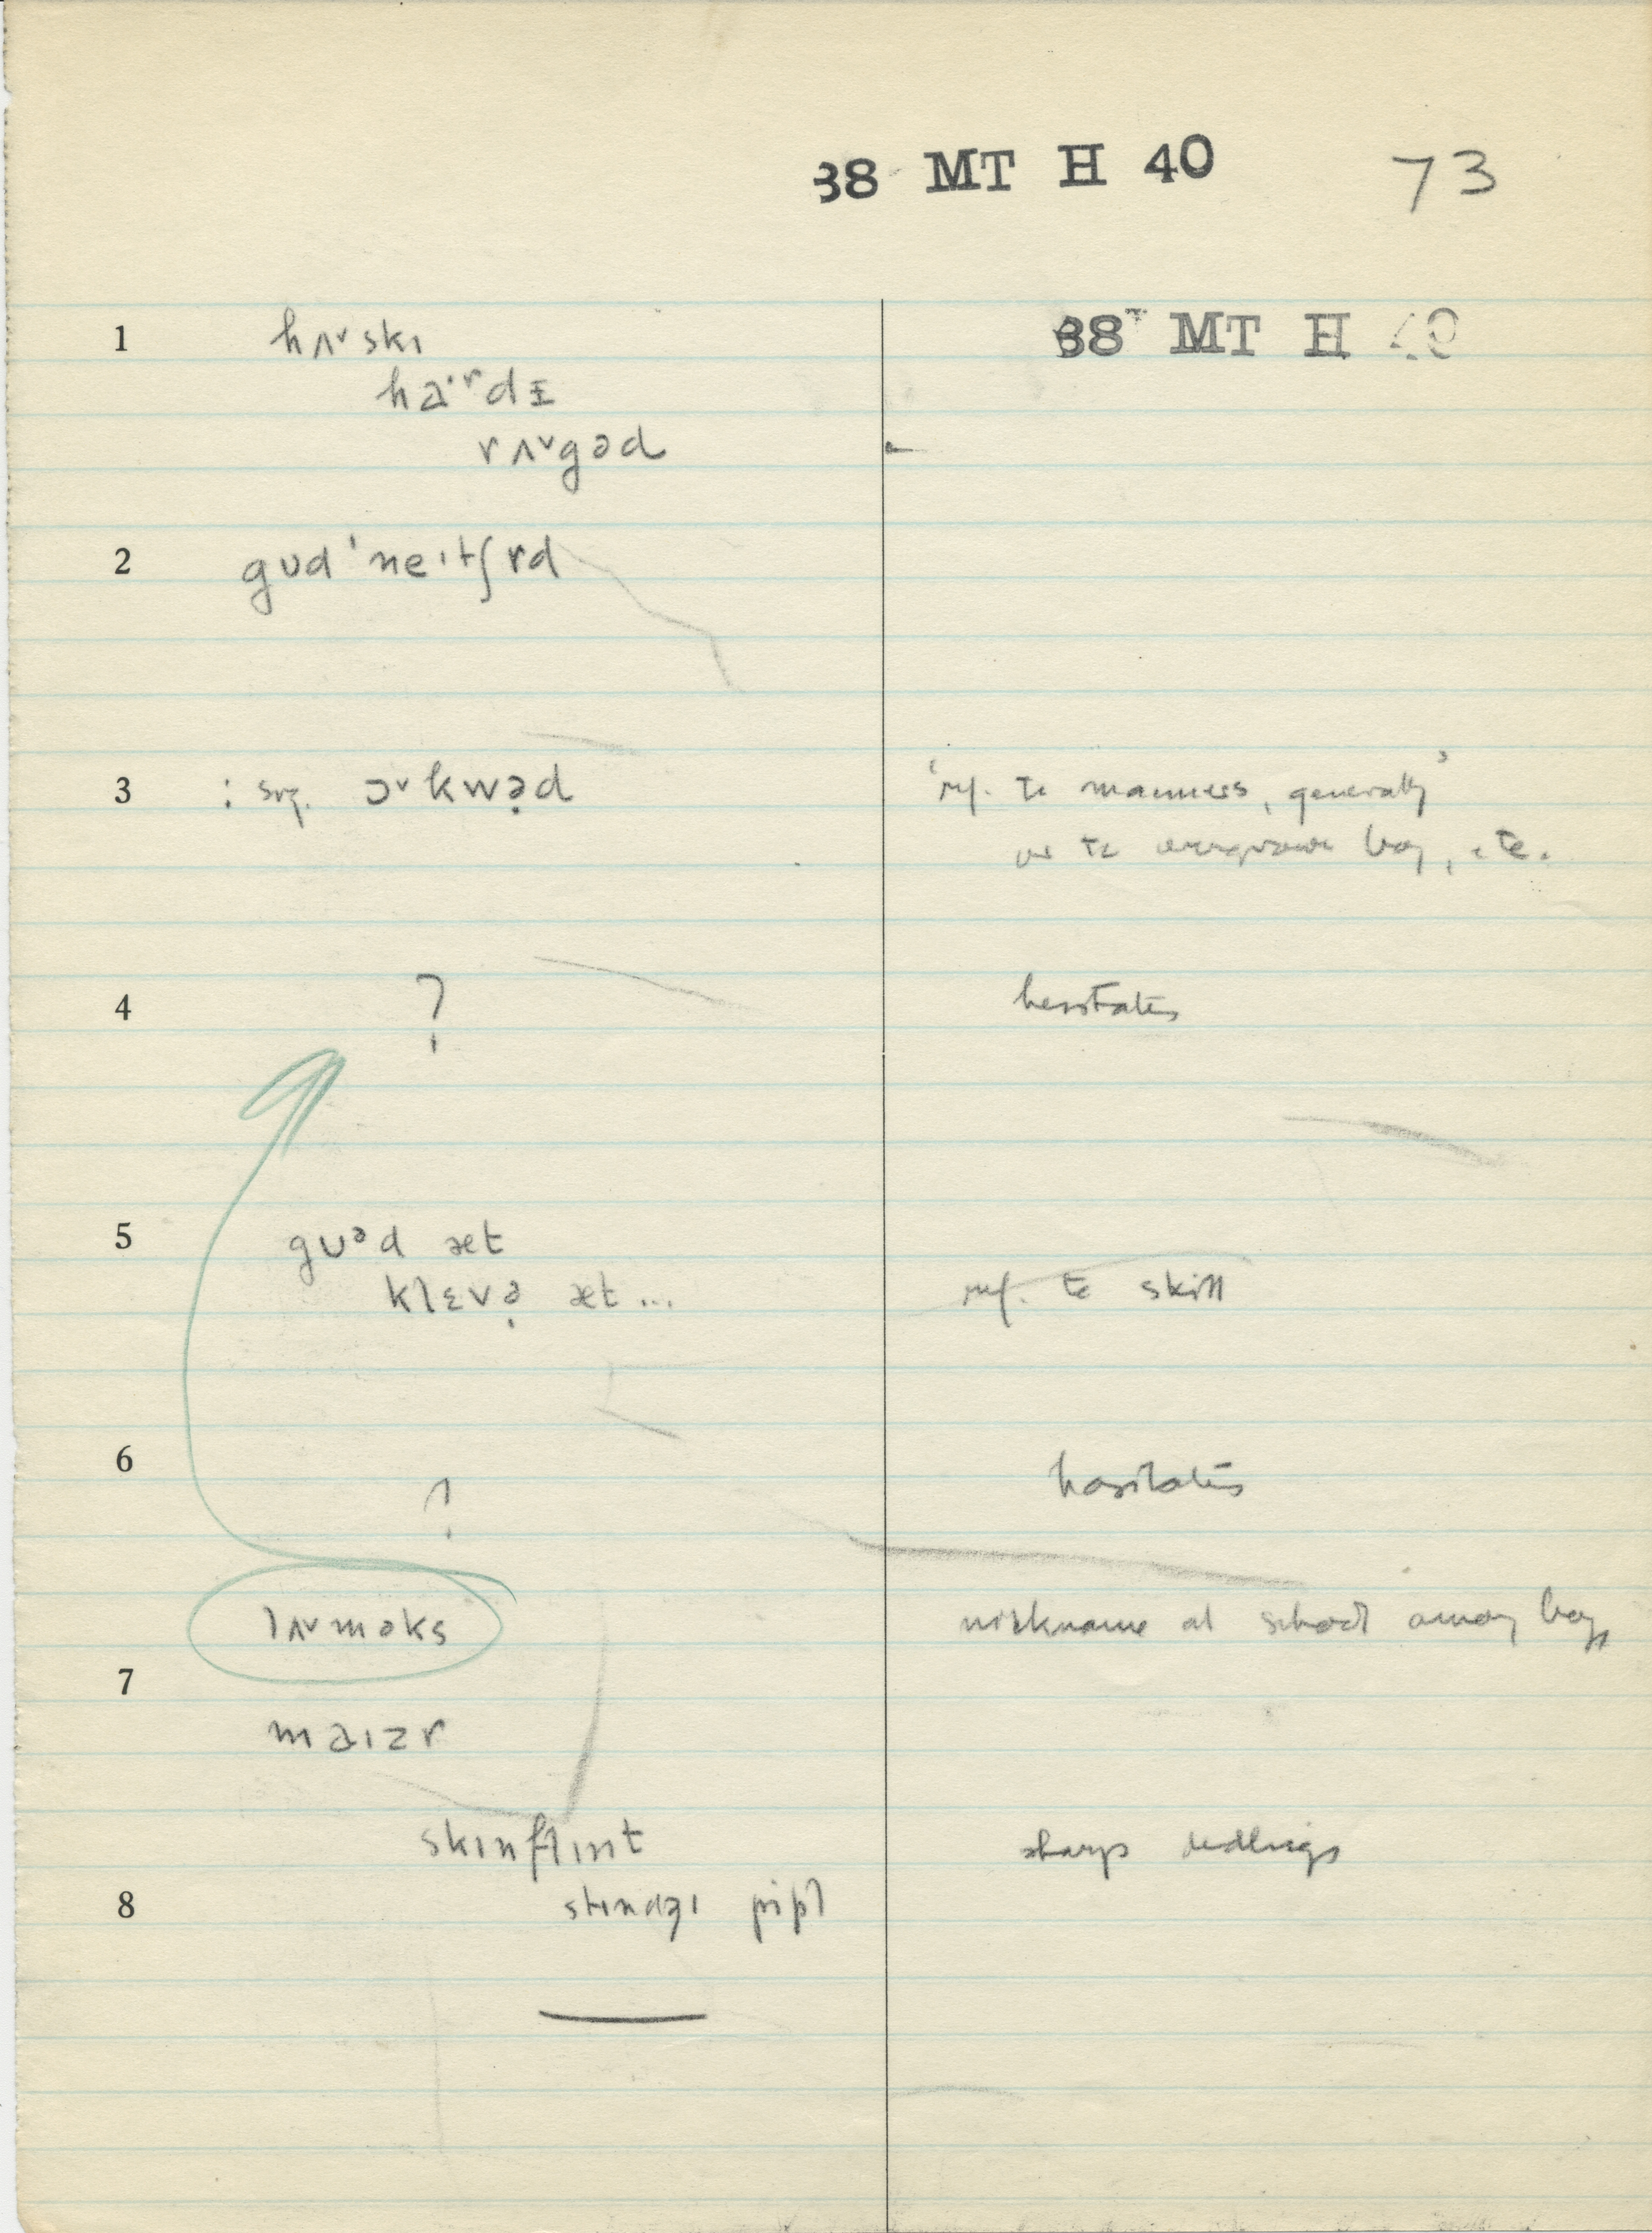 38 MT H 40 73
1 hʌ˅skɪ 38 MT H 40
ha·ʳdɪ
rʌ˅gəd
2 gʊd ˈneɪtʃrd
3 : sug. ɔ˅kwə̣d 'ref. to manners, generally'
or to overgrown boy, etc.
4 ? hesitates
5 gʊᵊd æt
klɛvə̣ æt... ref. to skill
6 ? hesitates
lʌ˅məks nickname at school among boys
7
maɪzr
skɪnflɪnt sharp dealings
8 stɪndʒɪ pipl